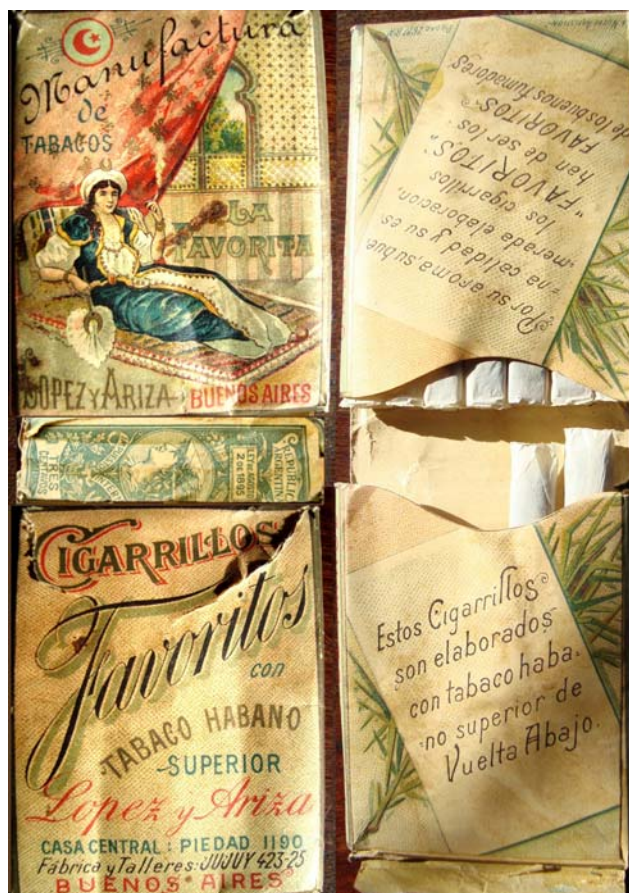 Manufactura
de
TABACOS
LA
FAVORITA
LOPEZ Y ARIZA BUENOS AIRES
REPUBLICA
ARGENTINA
2 DE 1895
TRES
CENTAVOS
CIGARRILLOS
Favoritos
con
TABACO HABANO
SUPERIOR
Lopez y Ariza
CASA CENTRAL: PIEDAD 1190
Fábrica y Talleres: JUJUY 423-25
BUENOS AIRES
Por su aroma, su bue
=na calidad y su es
=merada elaboracion,
los cigarrillos
"FAVORITOS"
han de ser los
FAVORITOS
de los buenos fumadores
Estos Cigarrillos
son elaborados
con tabaco haba-
no superior de
Vuelta Abajo.